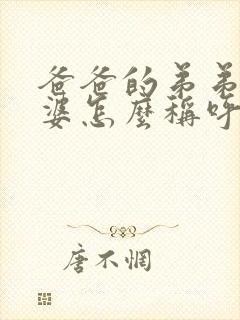 爸爸的弟弟
婆怎麼稱呼
唐不惘